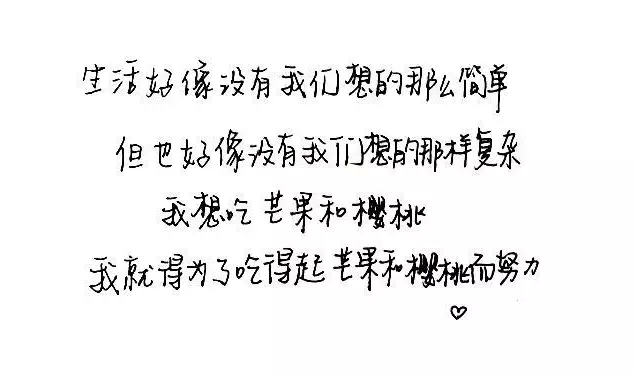 生活好像没有我们想的那么简单
但也好像没有我们想的那样复杂
我想吃芒果和樱桃
我就得为了吃得起芒果和樱桃而努力
♡